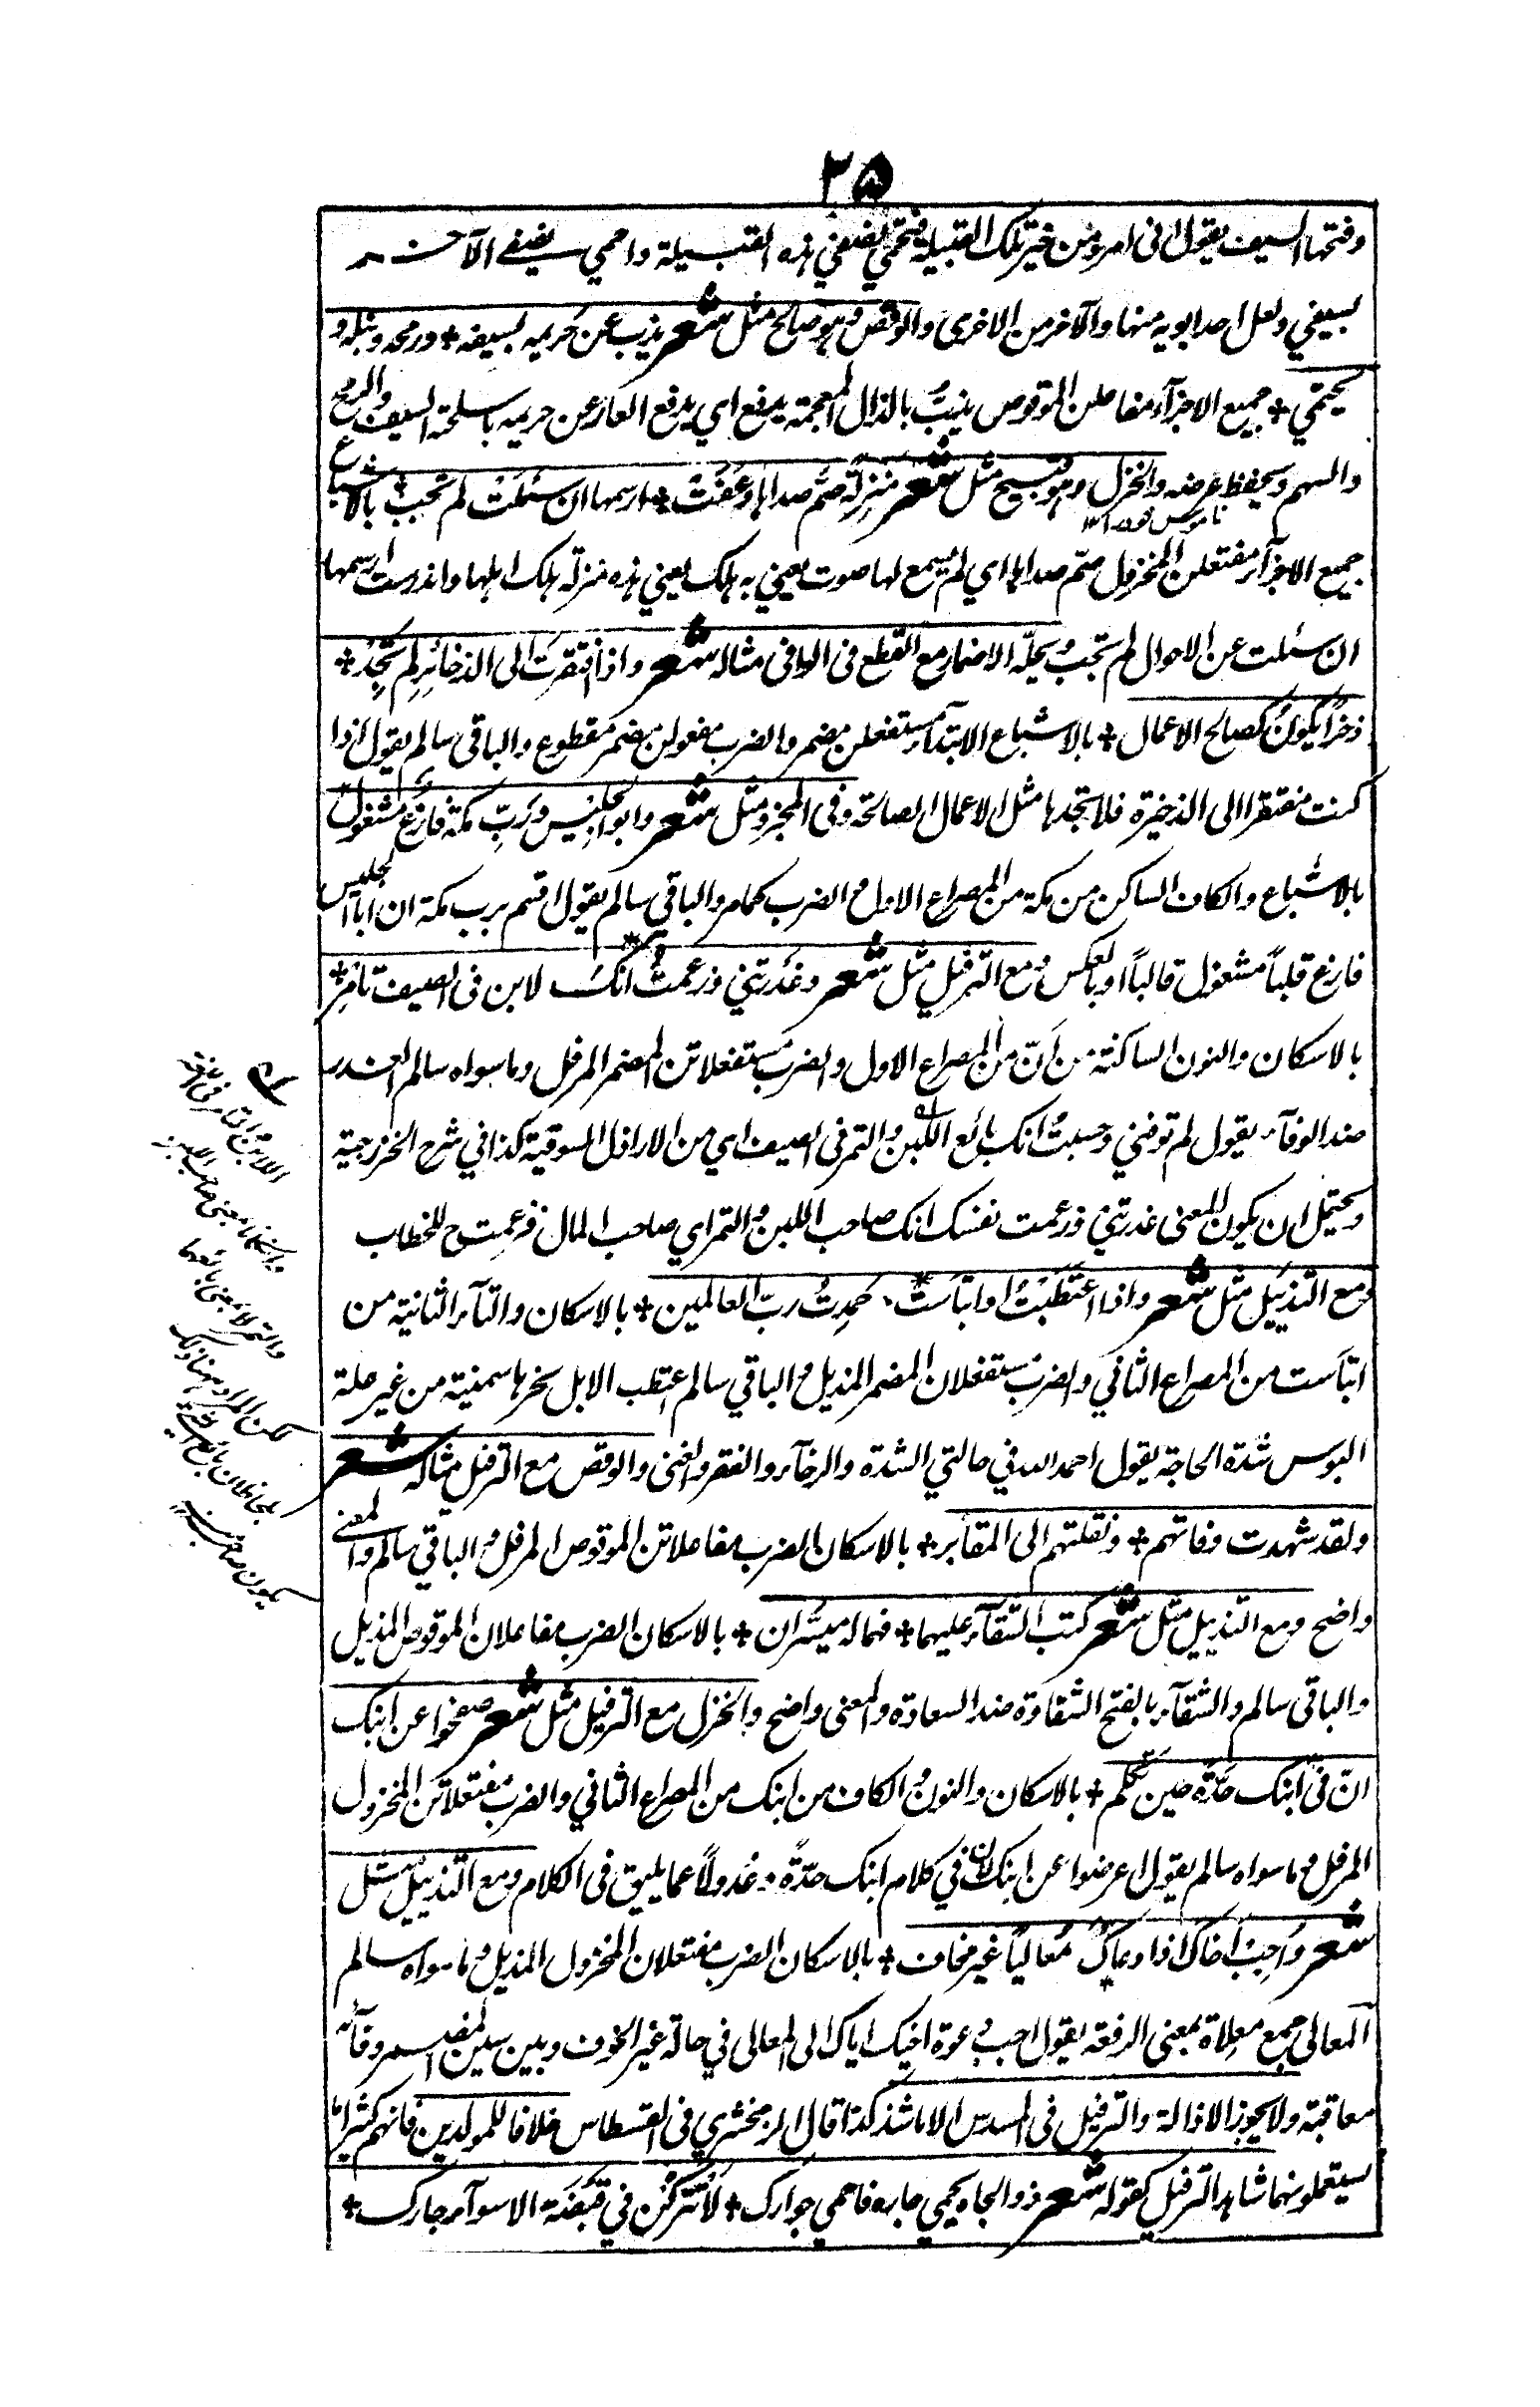 ٢٥
وفتحها السيف يقول انى امرؤ من خير تلك القبيلة فنحمي بضنفي هذه القبيلة واحمي نصيفى الآخر
بسيفي ولعل احد ابويه منها والآخر من الاخرى والوقص وهو صالح مثل شعر يذب عن حريمه بسيفه + ورمحه ونبله و
يحتمي + جميع الاجزآء مفاعلن الموقوص يذبّ بالذال المعجمة يدفع اي يدفع العار عن حريمه باسلحة السيف والرمح
والسهم ويحفظ عرضه والخزل وهو قبيح مثل شعر منزلة صمّ صداها وعفت + ارسمها ان سئلت لم تجب بالاشباع
جميع الاجزآء مفتعلن المخزول صم صداها اي لم يسمع لها صوت يعني به هلك يعني هذه منزلة هلك اهلها واندرست ارسمها
ان سئلت عن الاحوال لم تجب ويحلّه الاضمار مع القطع فى الوافى مثاله شعر واذا افتقرت الى الذخائر لم تجد +
ذخرًا يكون كصالح الاعمال + بالاشباع الابتدآء مستفعلن مضمر والضرب مفعولن مضمر مقطوع والباقى سالم يقول اذا
كنت مفتقرا الى الذخيرة فلا تجدها مثل الاعمال الصالحة وفى المجزو مثل شعر وابو الحليس وربِّ مكة فارغ مشغول
بالاشباع والكاف الساكن من مكة من المصراع الاول والضرب كما مر والباقي سالم يقول اقسم برب مكة ان ابا الحليس
فارغ قلباً مشغول قالباً او بالعكس ومع الترفيل مثل شعر وغدرتني وزعمت انك لابن فى الصيف تامر +
بالاسكان والنون الساكنة من انّ من المصراع الاول والضرب مستفعلاتن المضمر المرفل وما سواه سالم الغدر
ضد الوفآء يقول لم توفني وحسبت انك بائع اللبن والتمر فى الصيف اي من الاراذل السوقية كذا في شرح الخزرجية
ويحتمل ان يكون المعنى غدرتني وزعمت نفسك انك صاحب اللبن والتمر اي صاحب المال فزعمت ح للخطاب
ومع التذييل مثل شعر واذا اعتطبت او ابتأست + حمدت ربّ العالمين + بالاسكان والتآء الثانية من
ابتأست من المصراع الثاني والضرب مستفعلان المضمر المذيل والباقي سالم اعتطب الابل نحرها سمنية من غير علة
البوس شدة الحاجة يقول احمد الله في حالتي الشدة والرخآء والفقر والغنى والوقص مع الترفيل مثاله شعر
ولقد شهدت وفاتهم + ونقلتهم الى المقابر + بالاسكان الضرب مفاعلاتن الموقوص المرفل والباقي سالم والمعنى
واضح ومع التذييل مثل شعر كتب الشقآء عليهما + فهما له ميسّران + بالاسكان الضرب مفاعلان الموقوص المذيل
والباقى سالم والشقآء بالفتح الشقاوة ضد السعادة والمعنى واضح والخزل مع الترفيل مثل شعر صفحوا عن ابنك
انّ فى ابنك حدّة حين تكلم + بالاسكان والنون والكاف من ابنك من المصراع الثاني والضرب مفتعلاتن المخزول
المرفل وما سواه سالم يقول اعرضوا عن ابنك لان في كلام ابنك حدّةً وعُدولاً عما يليق فى الكلام ومع التذييل مثل
شعر واجب اخاك اذا دعاك معالياً غير مخاف + بالاسكان الضرب مفتعلان المخزول المذيل وما سواه سالم
المعالي جمع معلاة بمعنى الرفعة يقول اجب دعوة اخيك اياك الى المعالى في حالة غير الخوف وبين سين المضمر وفآئه
معاقبة ولا يجوز الاذالة والترفيل فى المسدس الا ما شذ كذا قال الزمخشري فى القسطاس خلافا للمولدين فانهم كثيرا ما
يستعملونهما شاهد الترفيل كقوله شعر ذو الجاه يحمي جاره فاحمي جوارك + لا تتركن في قبضة الاسوآء جارك +